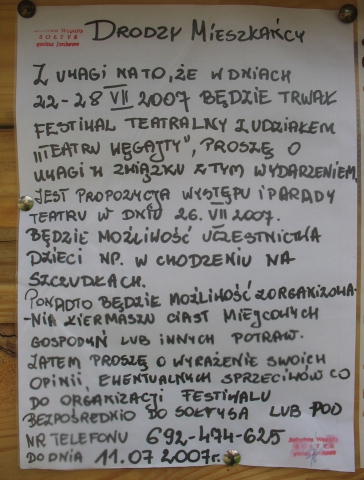 SOŁTYS
DRODZY MIESZKAŃCY
Z UWAGI NA TO, ŻE W DNIACH
22-28 VII 2007 BĘDZIE TRWAŁ
FESTIWAL TEATRALNY Z UDZIAŁEM
"TEATRU WĘGAJTY", PROSZĘ O
UWAGI W ZWIĄZKU Z TYM WYDARZENIEM.
JEST PROPOZYCJA WYSTĘPU I PARADY
TEATRU W DNIU 26.VII 2007.
BĘDZIE MOŻLIWOŚĆ UCZESTNICTWA
DZIECI NP. W CHODZENIU NA
SZCZUDŁACH.
PONADTO BĘDZIE MOŻLIWOŚĆ ZORGANIZOWA-
-NIA KIERMASZU CIAST MIEJSCOWYCH
GOSPODYŃ LUB INNYCH POTRAW.
ZATEM PROSZĘ O WYRAŻENIE SWOICH
OPINII, EWENTUALNYCH SPRZECIWÓW CO
DO ORGANIZACJI FESTIWALU
BEZPOŚREDNIO DO SOŁTYSA LUB POD
NR TELEFONU 692-474-625
DO DNIA 11.07 2007r.
SOŁTYS